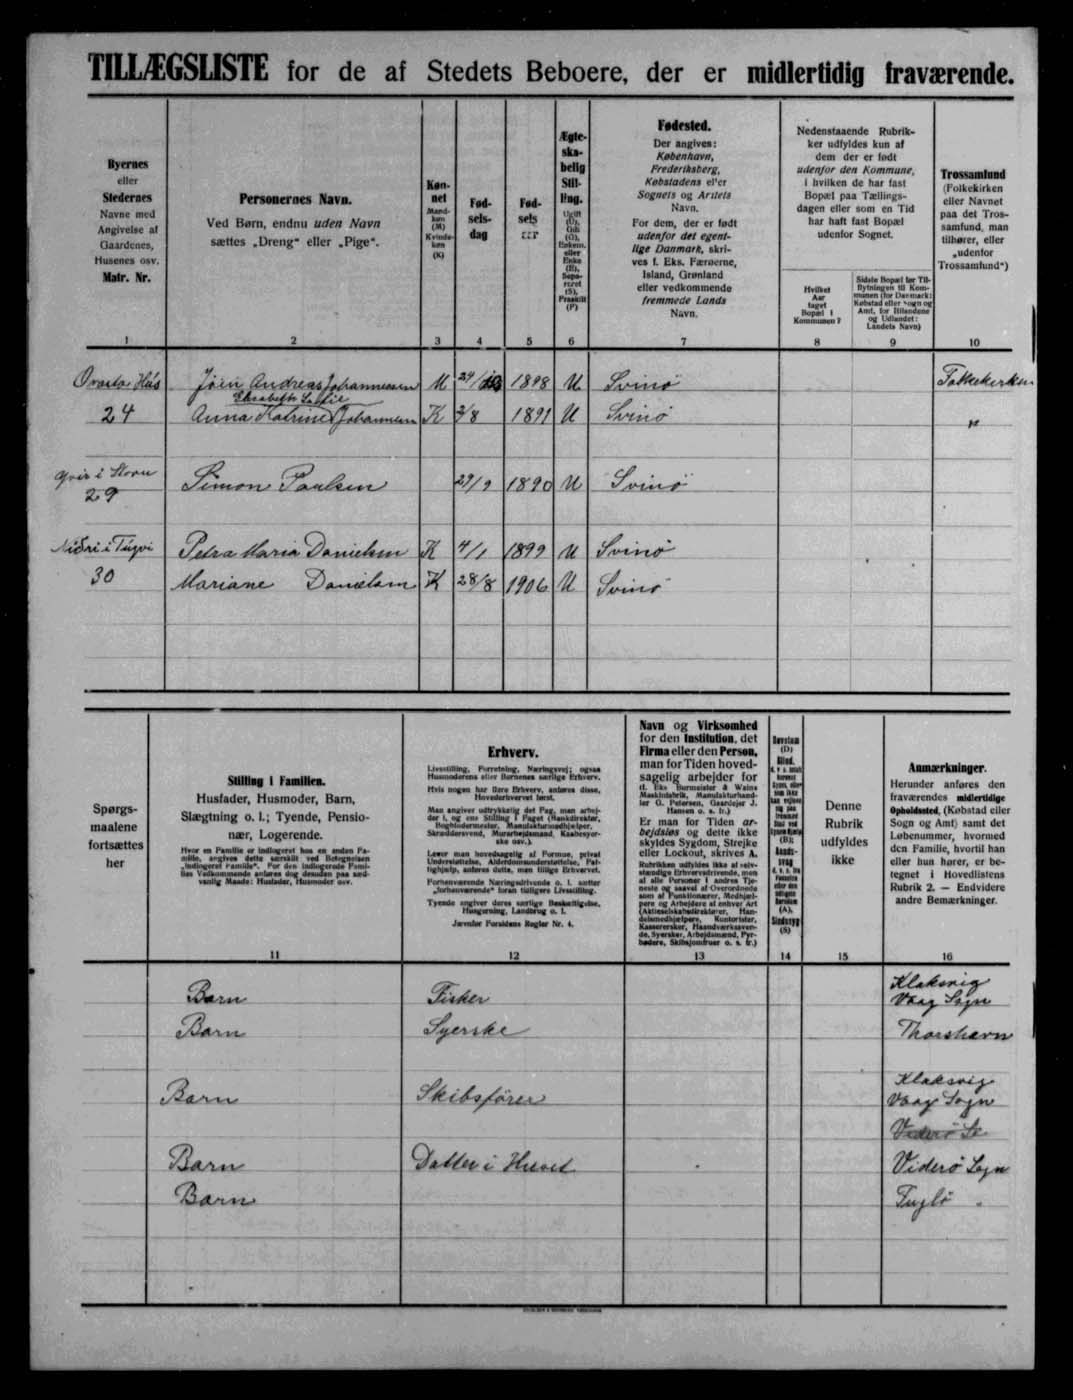 TILLÆGSLISTE for de af Stedets Beboere, der er midlertidig fraværende.
Byernes
eller
Stedernes
Navne med
Angivelse af
Gaardenes,
Husenes osv.
Matr. Nr.
1
Personernes Navn.
Ved Børn, endnu uden Navn
sættes „Dreng“ eller „Pige“.
2
Køn-
net
Mand-
køn
(M)
Kvinde-
køn
(K)
3
Fød-
sels-
dag
4
Fød-
sels
aar
5
Ægte-
ska-
belig
Stil-
ling.
Ugift
(U),
Gift
(G),
Enkem.
eller
Enke
(E),
Sepa-
reret
(S),
Fraskilt
(F)
6
Fødested.
Der angives:
København,
Frederiksberg,
Købstadens eller
Sognets og Amtets
Navn.
For dem, der er født
udenfor det egent-
lige Danmark, skri-
ves f. Eks. Færøerne,
Island, Grønland
eller vedkommende
fremmede Lands
Navn.
7
Nedenstaaende Rubrik-
ker udfyldes kun af
dem der er født
udenfor den Kommune,
i hvilken de har fast
Bopæl paa Tællings-
dagen eller som en Tid
har haft fast Bopæl
udenfor Sognet.
Hvilket
Aar
taget
Bopæl i
Kommunen?
8
Sidste Bopæl før Til-
flytningen til Kom-
munen (for Danmark:
Købstad eller Sogn og
Amt, for Bilandene
og Udlandet:
Landets Navn)
9
Trossamfund
(Folkekirken
eller Navnet
paa det Tros-
samfund, man
tilhører, eller
„udenfor
Trossamfund“)
10
Hús Jóin Andreas Johannesen M 24/ 1898 U Svinö Folkekirken
Elisabeth
24 Anna Katrine Johannesen K 2/8 1891 U Svinö "
i Stovu
29 Simon Poulsen 29/9 1890 U Svinö
Niðri i Túgvi Petra Maria Danielsen K 4/1 1899 U Svinö
30 Mariane Danielsen K 28/8 1906 U Svinö
Spørgs-
maalene
fortsættes
her
Stilling i Familien.
Husfader, Husmoder, Barn,
Slægtning o. l.; Tyende, Pensio-
nær, Logerende.
Hvor en Familie er indlogeret hos en anden Fa-
milie, angives dette særskilt ved Betegnelsen
„indlogeret Familie“. For den indlogerede Fami-
lies Vedkommende anføres dog desuden paa sæd-
vanlig Maade: Husfader, Husmoder osv.
11
Erhverv.
Livsstilling, Forretning, Næringsvej; ogsaa
Husmoderens eller Børnenes særlige Erhverv.
Hvis nogen har flere Erhverv, anføres disse,
Hovederhvervet først.
Man angiver udtrykkelig det Fag, man arbej-
der i, og ens Stilling i Faget (Bankdirektør,
Bogbindermester, Manufakturmedhjælper,
Skræddersvend, Murarbejdsmand, Knabesyer-
ske osv.).
Lever man hovedsagelig af Formue, privat
Understøttelse, Alderdomsunderstøttelse, Fat-
tighjælp, anføres dette, men tillige Erhvervet.
Forhenværende Næringsdrivende o. l. sætter
„forhenværende“ foran tidligere Livsstilling.
Tyende angiver deres særlige Beskæftigelse,
Husgerning, Landbrug o. l.
Jævnfør Forsidens Regler Nr. 4.
12
Navn og Virksomhed
for den Institution, det
Firma eller den Person,
man for Tiden hoved-
sagelig arbejder for
(f. Eks Burmeister & Wains
Maskinfabrik, Manufakturhand-
ler O. Petersen, Gaardejer J.
Hansen o. s. fr.)
Er man for Tiden ar-
bejdsløs og dette ikke
skyldes Sygdom, Strejke
eller Lockout, skrives A.
Rubrikken udfyldes ikke af selv-
stændige Erhvervsdrivende, men
af alle Personer i andres Tje-
neste og saavel af Overordnede
som af Funktionærer, Medhjæl-
pere og Arbejdere af enhver Art
(Aktieselskabsdirektører, Han-
delsmedhjælpere, Kontorister,
Kassererske, Haandværkssven-
de, Syersker, Arbejdsmænd, Fyr-
bødere, Skibsjomfruer o. s. fr.)
13
Døvstum
(D)
Blind,
(B);
Aands-
svag
(A),
Sindssyg
(S)
14
Denne
Rubrik
udfyldes
ikke
15
Anmærkninger.
Herunder anføres den
fraværendes midlertidige
Opholdssted, (Købstad eller
Sogn og Amt) samt det
Løbenummer, hvormed
den Familie, hvortil han
eller hun hører, er be-
tegnet i Hovedlistens
Rubrik 2. — Endvidere
andre Bemærkninger.
16
Klaksvig
Barn Fisker Vaag Sogn
Barn Syerske Thorshavn
Klaksvig
Barn Skibsfører Vaag Sogn
Viderö
Barn Datter i Huset Viderö Sogn
Barn Fuglö "